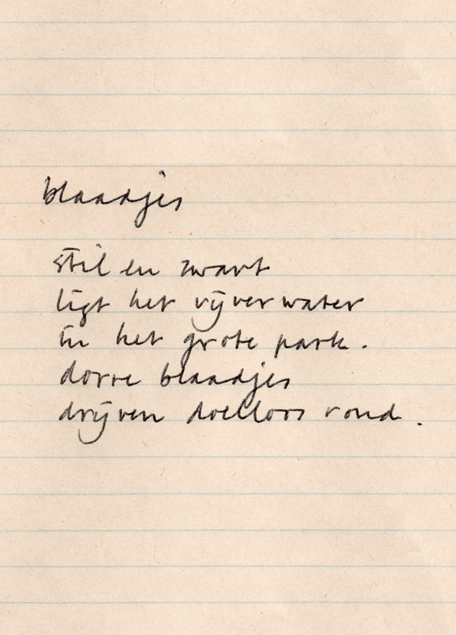 blaadjes
stil en zwart
ligt het vijverwater
in het grote park.
dorre blaadjes
drijven doelloos rond.